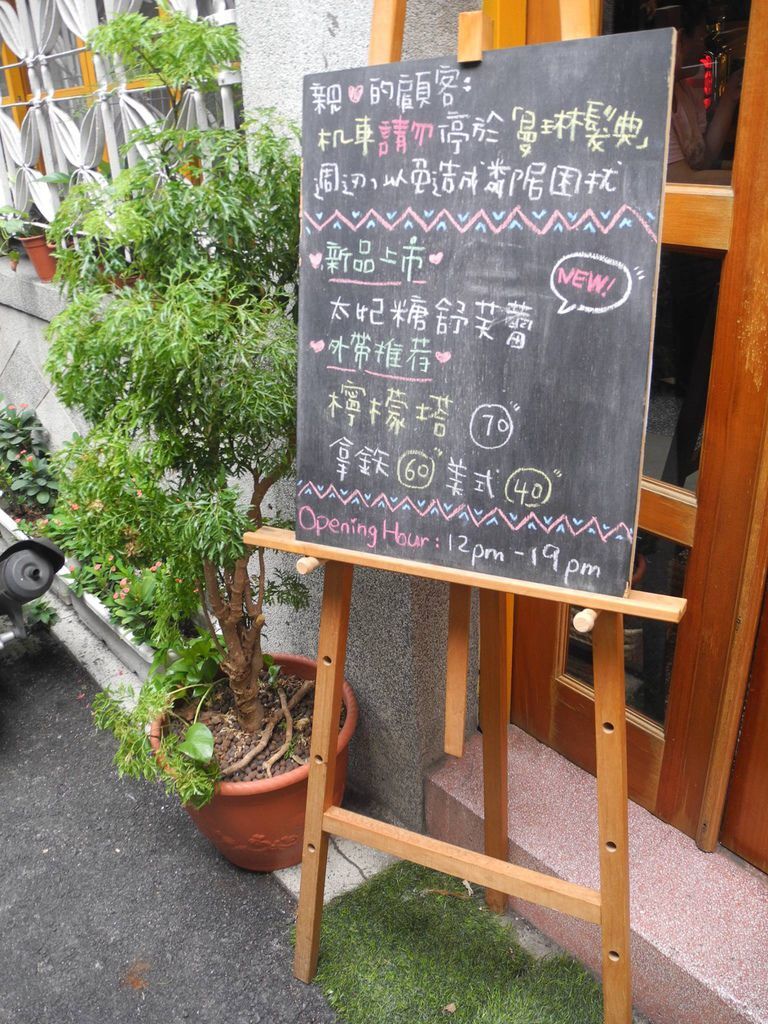 親❤的顧客:
机車請勿停於「曼琳髮典」
周边,以免造成鄰居困扰
新品上市
NEW!
太妃糖舒芙蕾
外帶推荐
檸檬塔 70
拿鉄 60 美式 40
Opening Hour: 12pm - 19pm